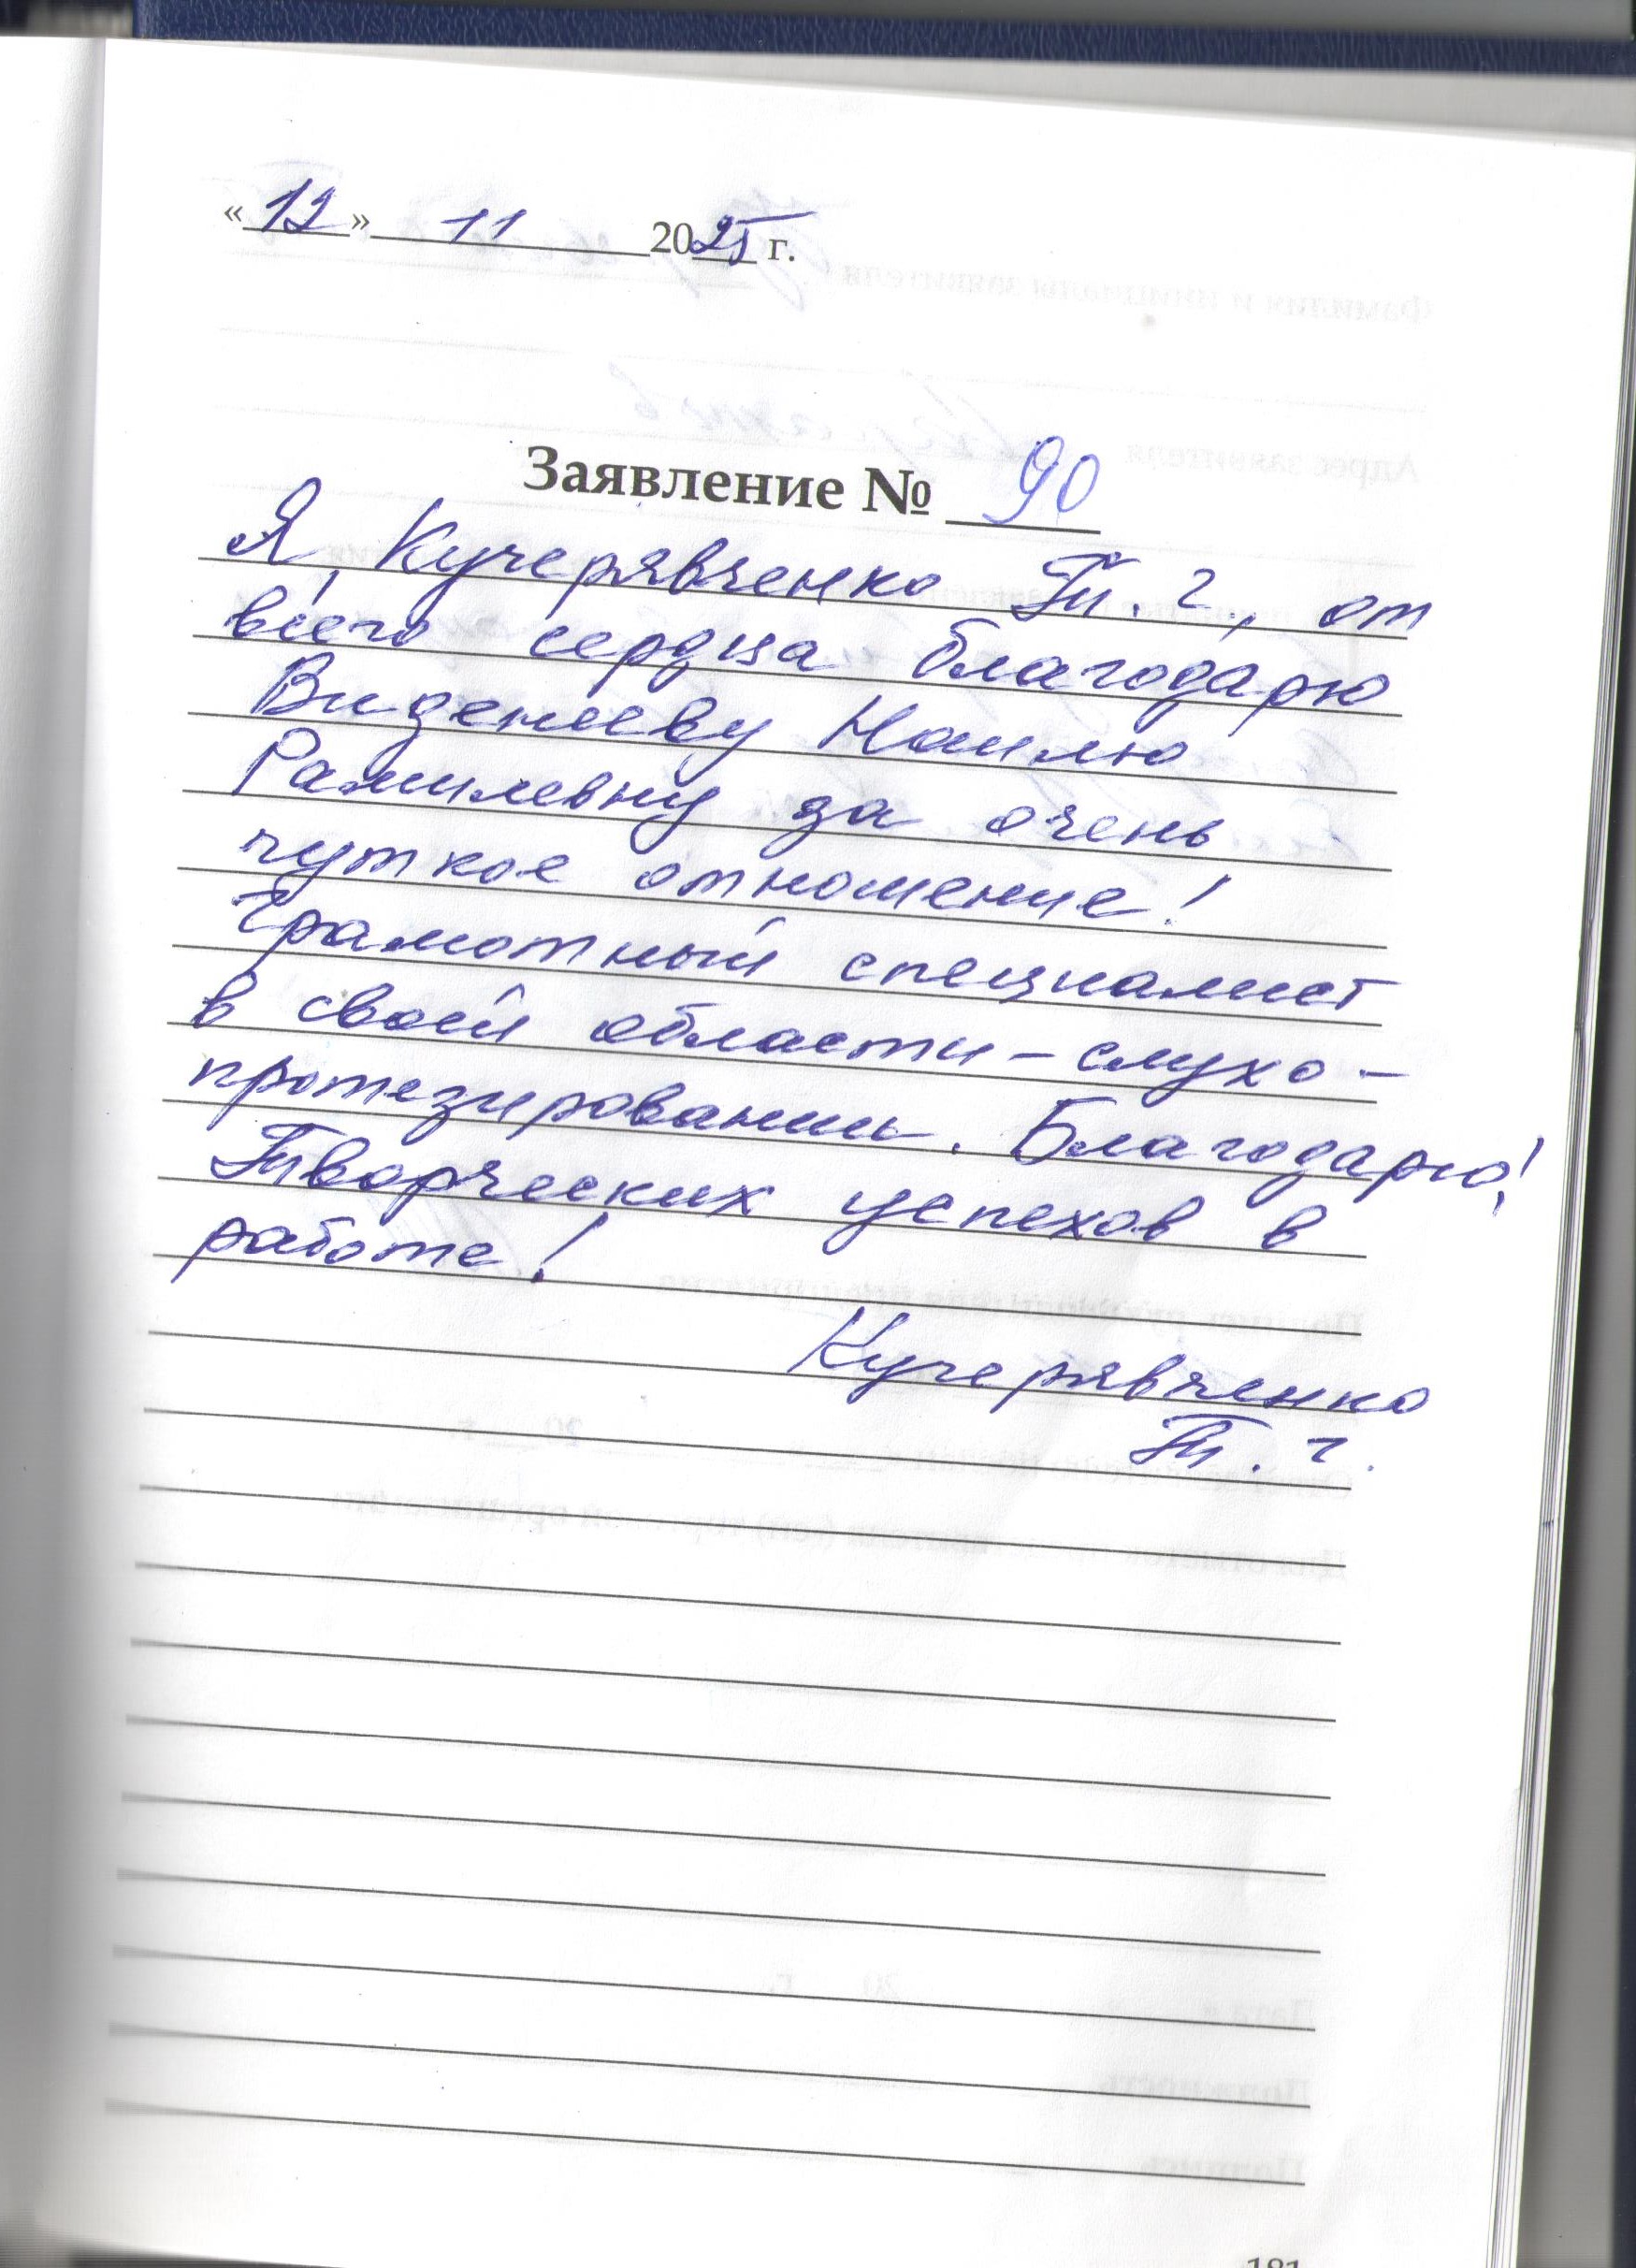 «12» 11 2025 г.
Заявление № 90
Я, Кучерявченко Т. Г., от
всего сердца благодарю
Виденееву Наилю
Рамилевну за очень
чуткое отношение!
Грамотный специалист
в своей области – слухо-
протезировании. Благодарю!
Творческих успехов в
работе!
Кучерявченко
Т. Г.
181